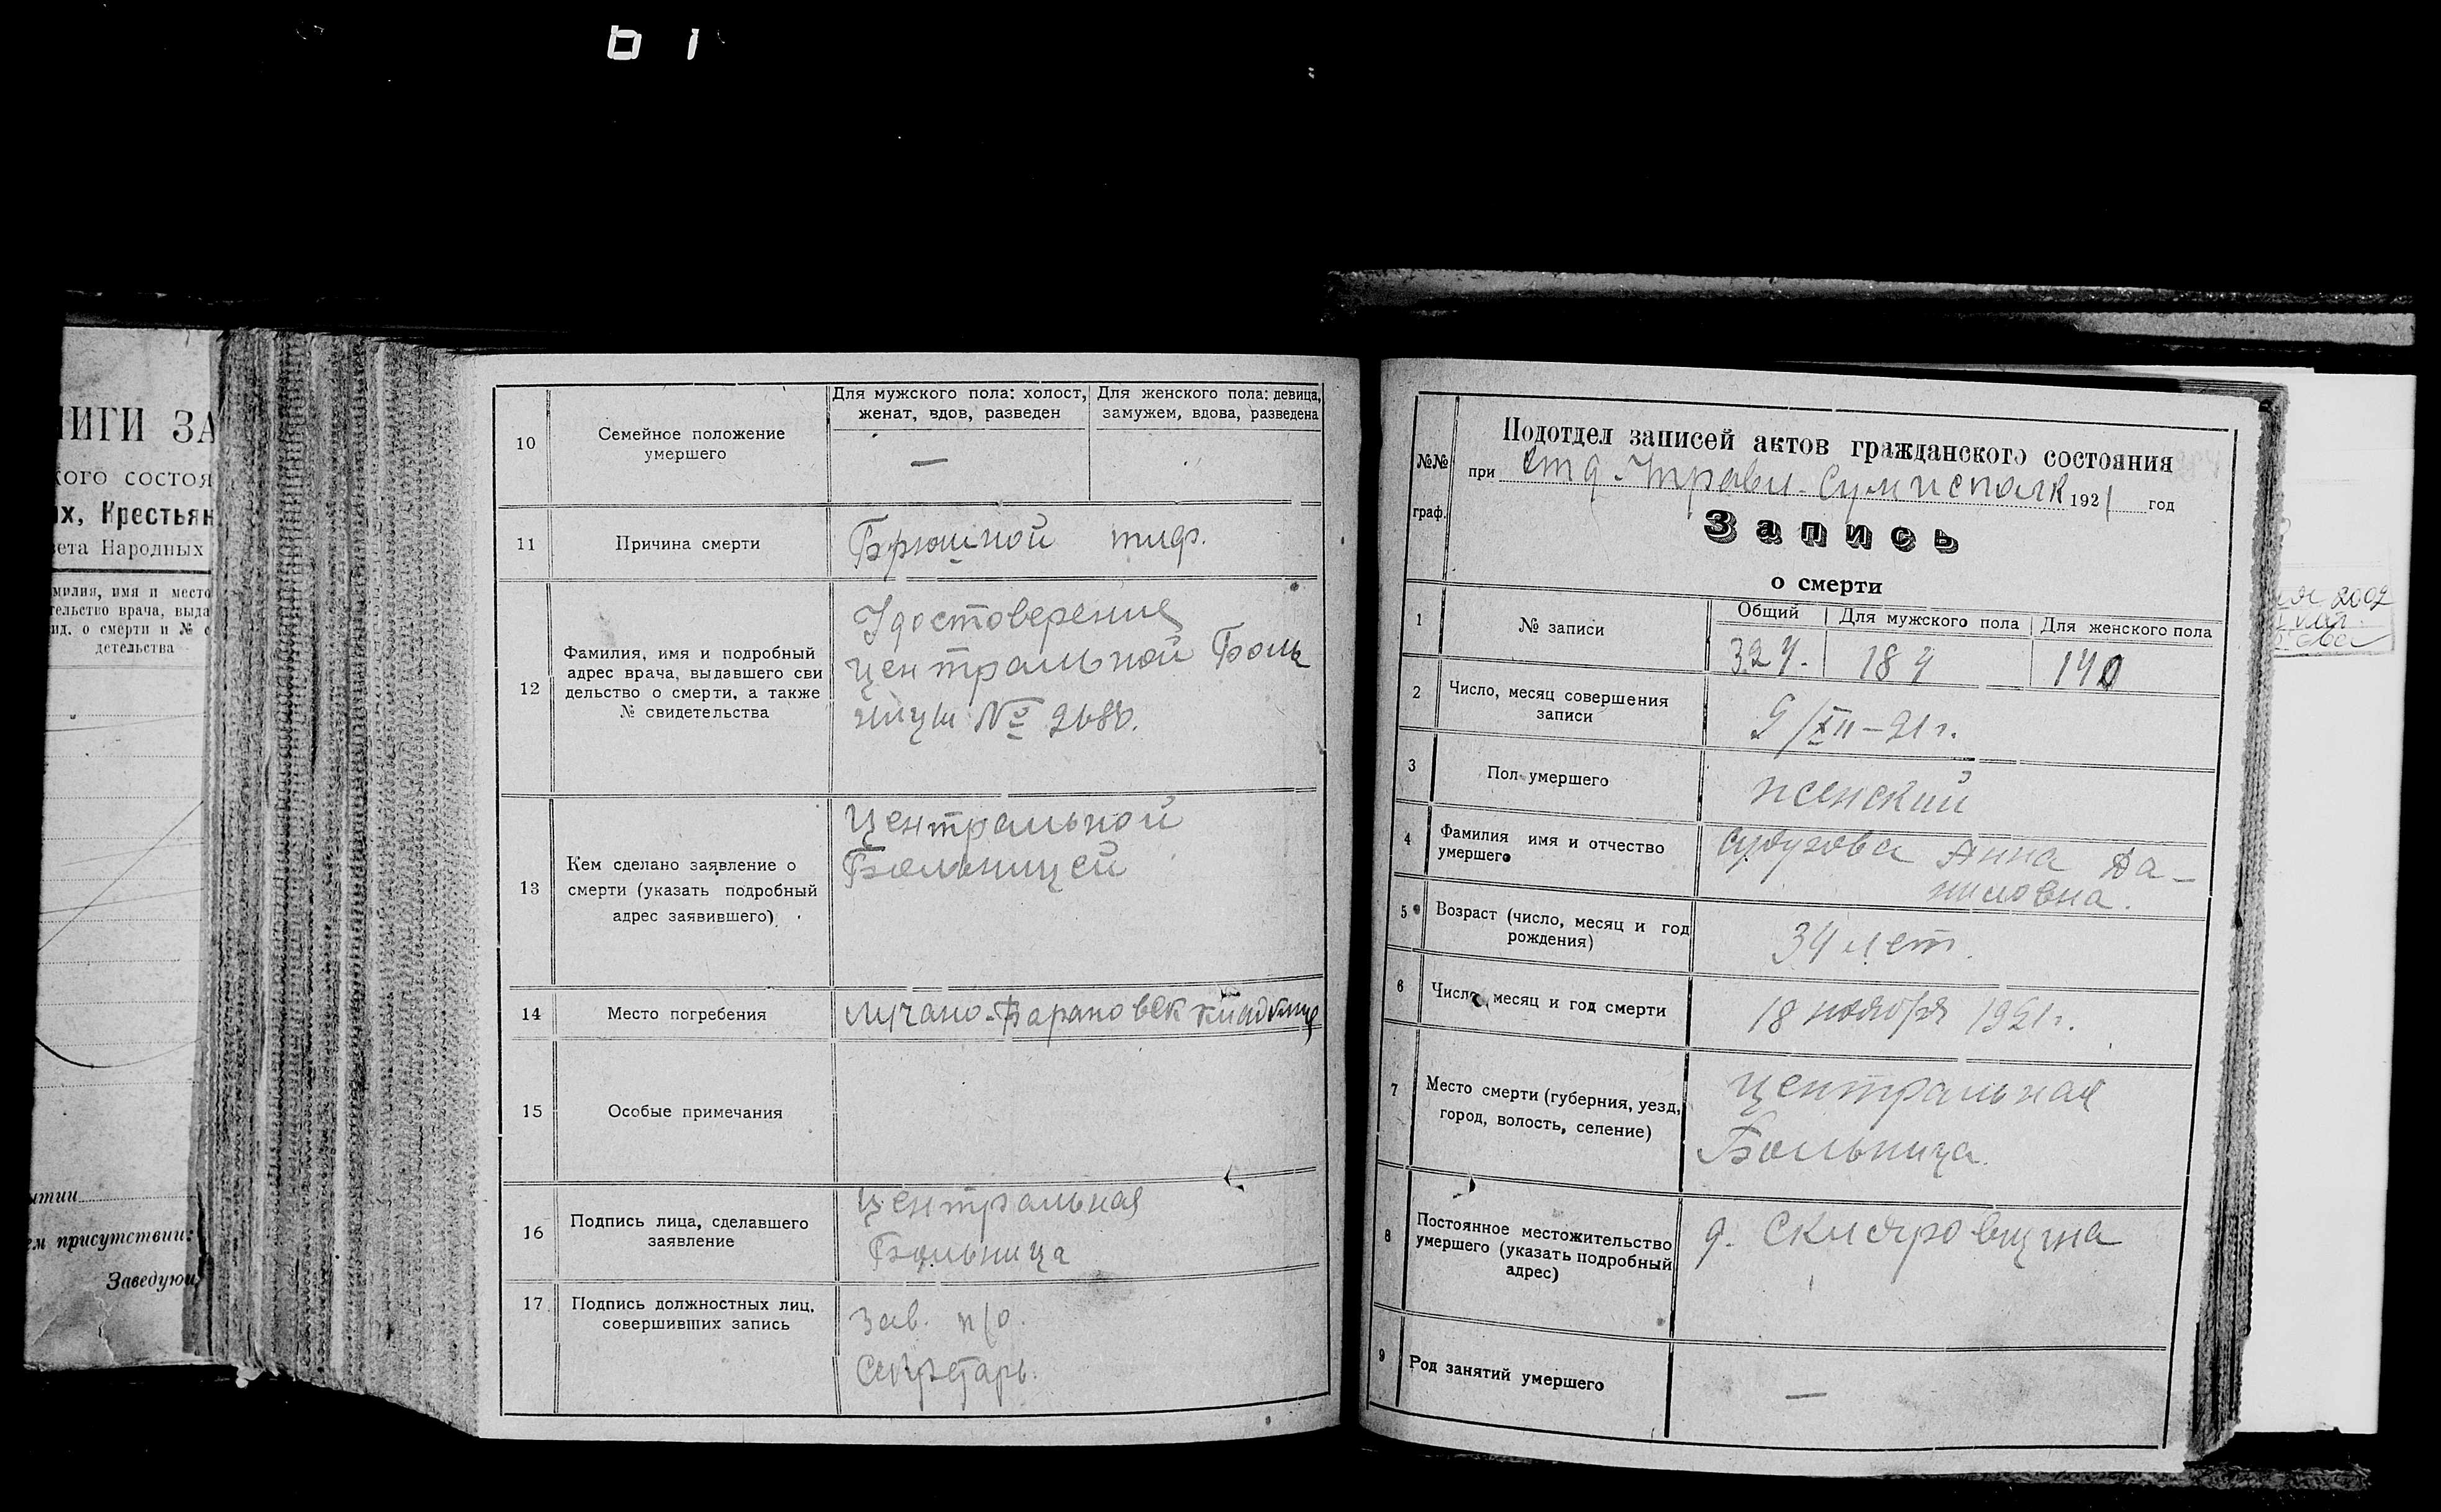 ИГИ ЗА
кого состоя
их, Крестьян
вета Народных
милия, имя и место
тельство врача, выда
ид. о смерти и № с
детельства
ытии
ем присутствии:
Заведую
10
Семейное положение
умершего
Для мужского пола: холост,
женат, вдов, разведен
Для женского пола: девица,
замужем, вдова, разведена
—
11
Причина смерти
Брюшной тиф.
12
Фамилия, имя и подробный
адрес врача, выдавшего сви
дельство о смерти, а также
№ свидетельства
Удостоверение
Центральной Боль
ницы №
13
Кем сделано заявление о
смерти (указать подробный
адрес заявившего)
Центральной
Больницей
14
Место погребения
Лучано-Барановск кладбище
15
Особые примечания
16
Подпись лица, сделавшего
заявление
Центральная
Больница
17
Подпись должностных лиц,
совершивших запись
Зав. п/о.
Секретарь.
№№
граф.
Подотдел записей актов гражданского состояния
при отд. Управл. Сумисполк 1921 год
Запись
о смерти
1
№ записи
Общий
Для мужского пола
Для женского пола
324.
184
140
2
Число, месяц совершения
записи
9/XII–21 г.
3
Пол умершего
женский
4
Фамилия имя и отчество
умершего
Анна Да-
ниловна.
5
Возраст (число, месяц и год
рождения)
34 лет.
6
Число, месяц и год смерти
18 ноября 1921 г.
7
Место смерти (губерния, уезд,
город, волость, селение)
Центральная
Больница.
8
Постоянное местожительство
умершего (указать подробный
адрес)
д. Скляровщина
9
Род занятий умершего
—
2002